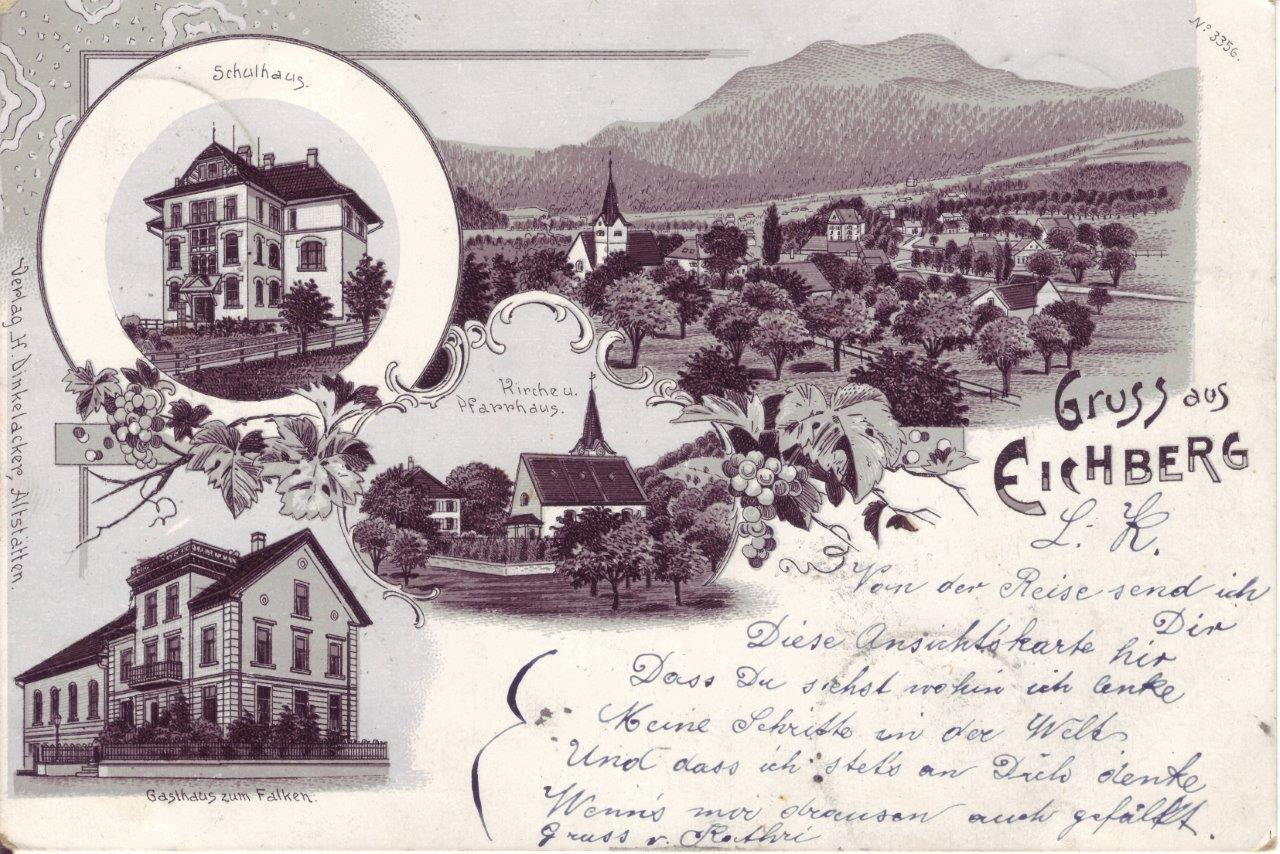 Nº 3356.
Schulhaus.
Kirche u.
Pfarrhaus.
Gruss aus
EICHBERG
Verlag H. Dinkelacker, Altstätten.
Gasthaus zum Falken.
L. K.
Von der Reise send ich Dir
Diese Ansichtskarte hir
Dass Du siehst wohin ich lenke
Meine Schritte in der Welt
Und dass ich stets an Dich denke
Wenn's mir draussen auch gefällt.
Gruss v. Kathri